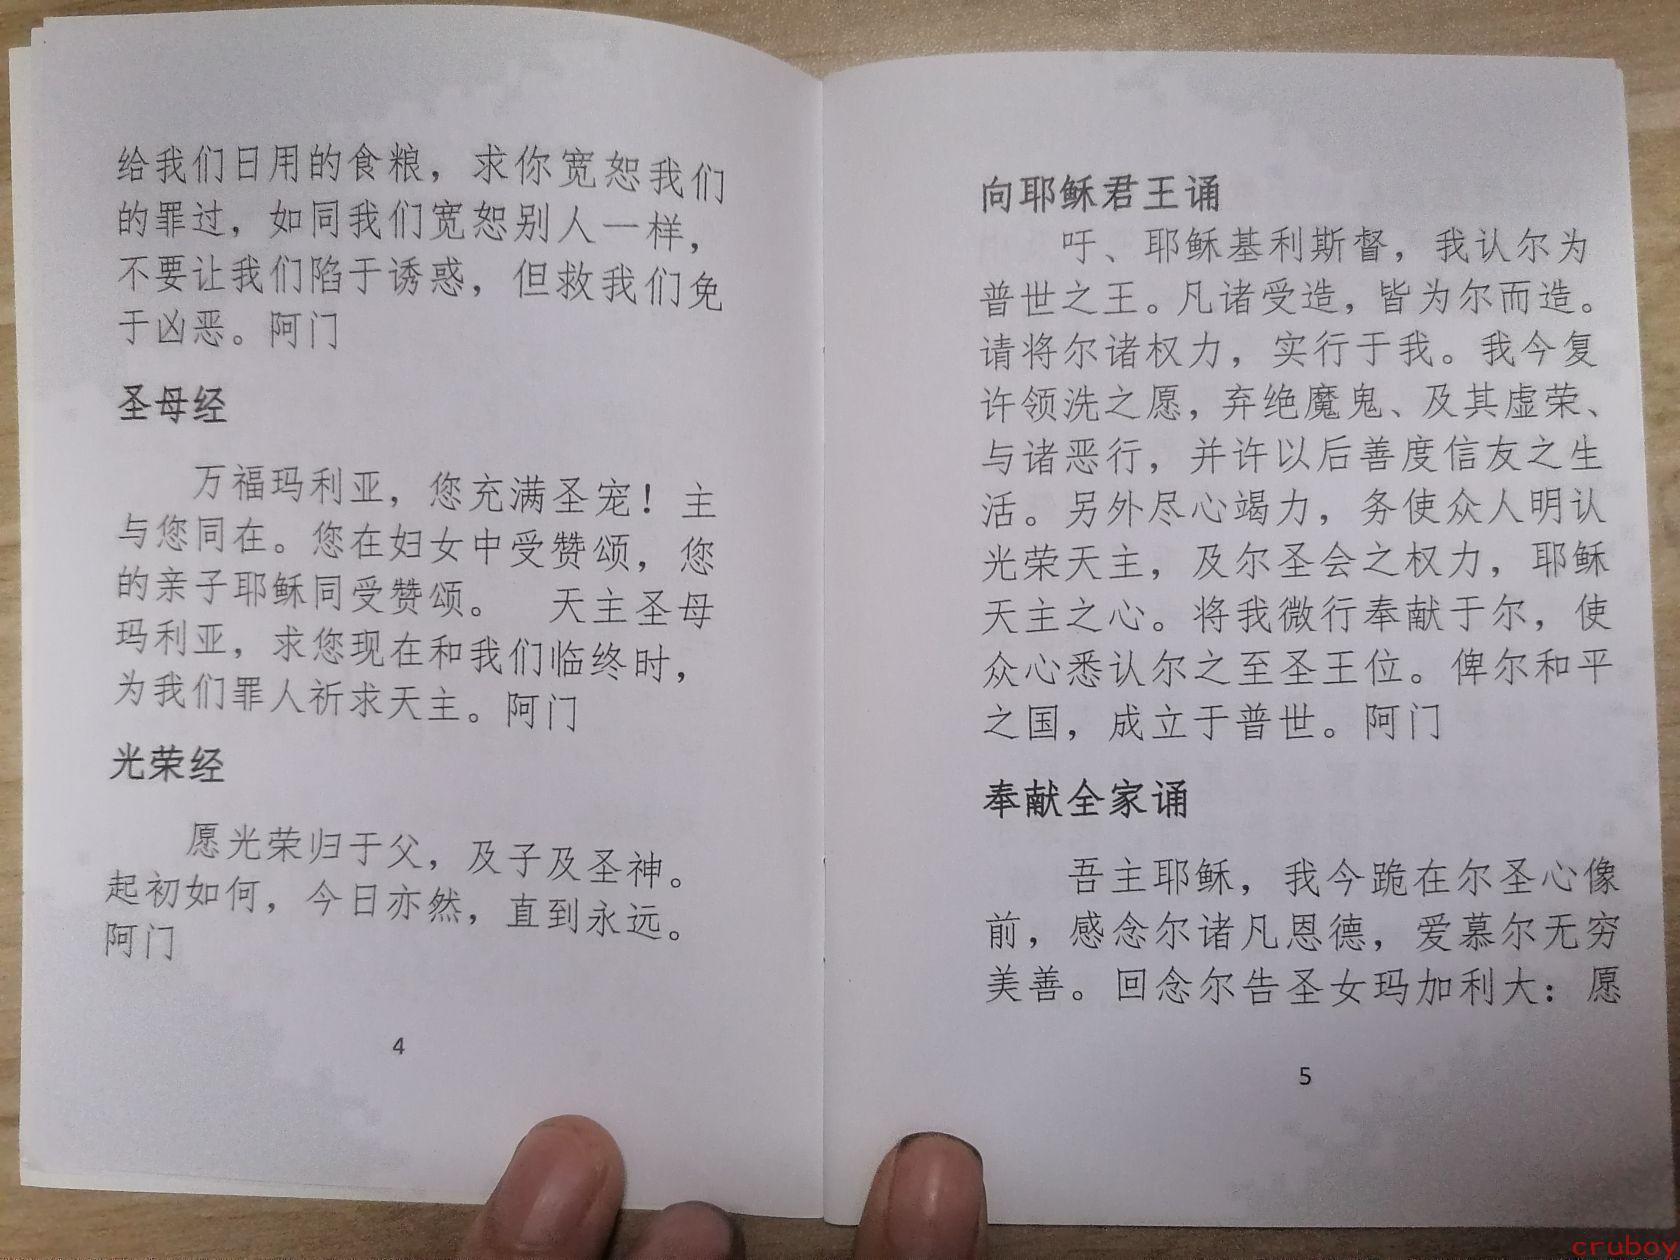 给我们日用的食粮，求你宽恕我们
的罪过，如同我们宽恕别人一样，
不要让我们陷于诱惑，但救我们免
于凶恶。阿门
圣母经
万福玛利亚，您充满圣宠！主
与您同在。您在妇女中受赞颂，您
的亲子耶稣同受赞颂。 天主圣母
玛利亚，求您现在和我们临终时，
为我们罪人祈求天主。阿门
光荣经
愿光荣归于父，及子及圣神。
起初如何，今日亦然，直到永远。
阿门
4
向耶稣君王诵
吁、耶稣基利斯督，我认尔为
普世之王。凡诸受造，皆为尔而造。
请将尔诸权力，实行于我。我今复
许领洗之愿，弃绝魔鬼、及其虚荣、
与诸恶行，并许以后善度信友之生
活。另外尽心竭力，务使众人明认
光荣天主，及尔圣会之权力，耶稣
天主之心。将我微行奉献于尔，使
众心悉认尔之至圣王位。俾尔和平
之国，成立于普世。阿门
奉献全家诵
吾主耶稣，我今跪在尔圣心像
前，感念尔诸凡恩德，爱慕尔无穷
美善。回念尔告圣女玛加利大：愿
5
cruboy